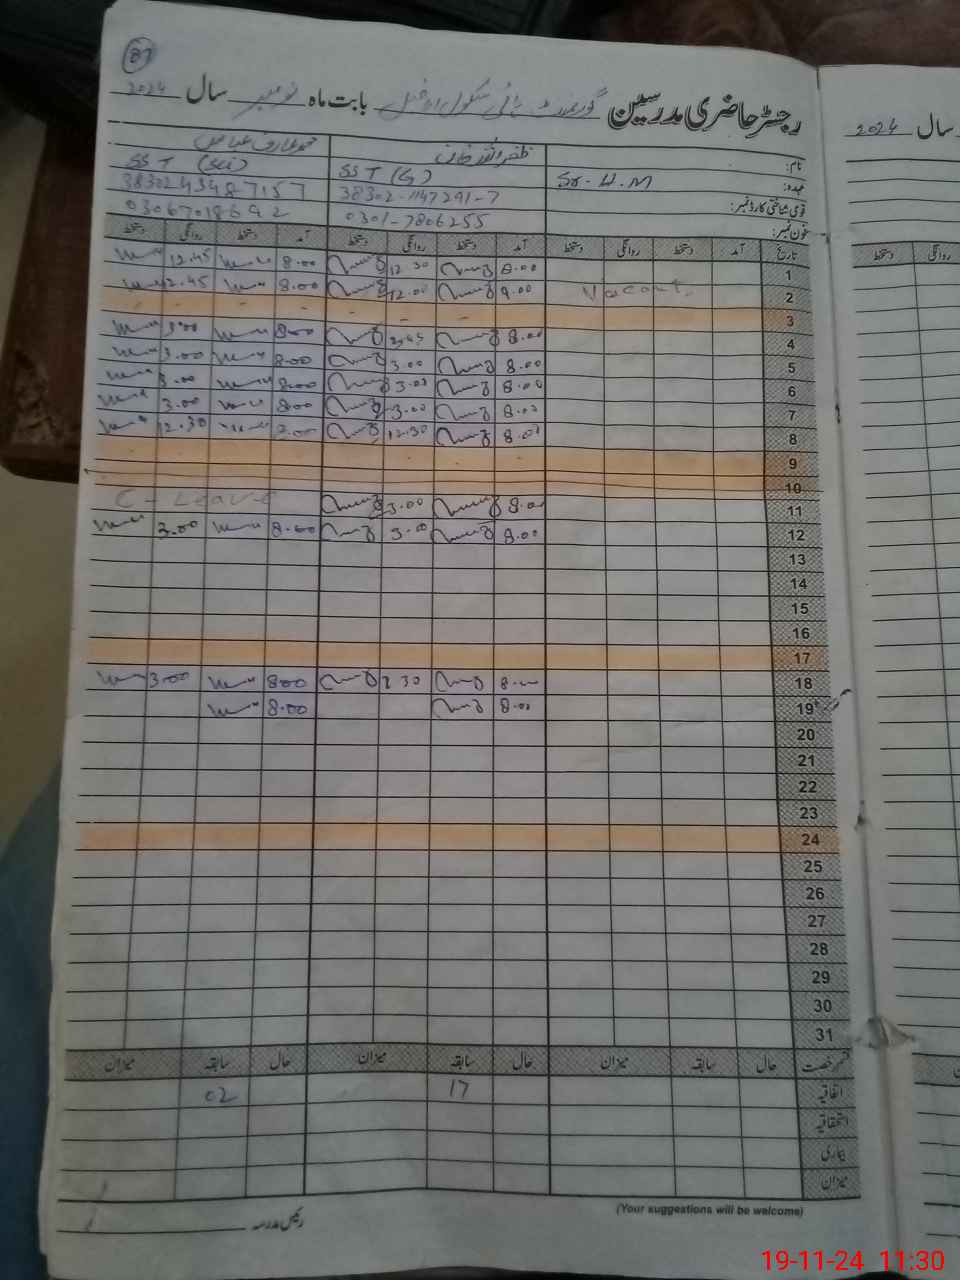 87
رجسٹر حاضری مدرسین گورنمنٹ ہائی سکول بابت ماہ نومبر سال 2024
نام: ظفر اللہ خان محمد عارف عباس
عہدہ: Sr. H. M SST (G) SST (Sci)
قومی شناختی کارڈ نمبر: 38302-1147291-7 38302 4394 8 7157
فون نمبر: 0301-7806255 03067018692
تاریخ آمد دستخط روانگی دستخط آمد دستخط روانگی دستخط آمد دستخط روانگی دستخط
1 8.00 12.30 8.00 12.45
2 Vacant. 8.00 12.00 8.00 2.45
3
4 8.00 2.45 8.00 3.00
5 8.00 3.00 8.00 3.00
6 8.00 3.00 8.00 3.00
7 8.00 3.00 8.00 3.00
8 8.00 12.30 8.00 12.30
9
10
11 8.00 3.00 C - Leave
12 8.00 3.00 8.00 3.00
13
14
15
16
17
18 8.00 2 30 8.00 3.00
19 8.00 8.00
20
21
22
23
24
25
26
27
28
29
30
31
قسم رخصت حال سابقہ میزان حال سابقہ میزان حال سابقہ میزان
اتفاقیہ 17 02
استحقاقیہ
بیماری
میزان
(Your suggestions will be welcome)
رئیس مدرسہ
سال 2024
روانگی دستخط
19-11-24 11:30